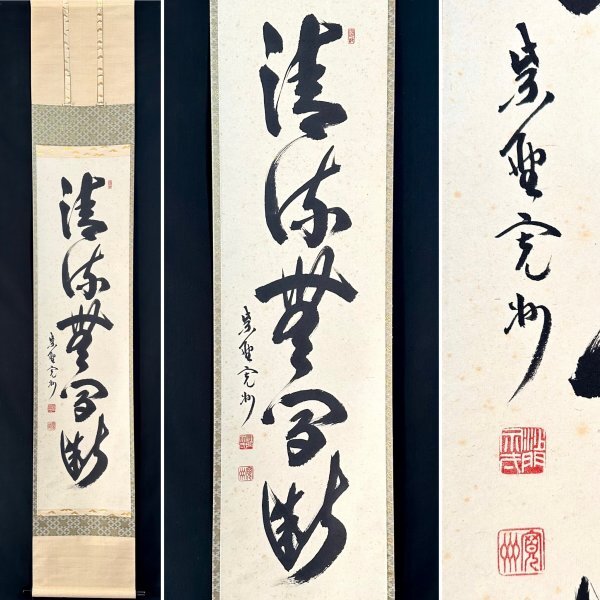 清流無間断
紫野寛州
清流無間断
紫野寛州
紫野寛州
寛州